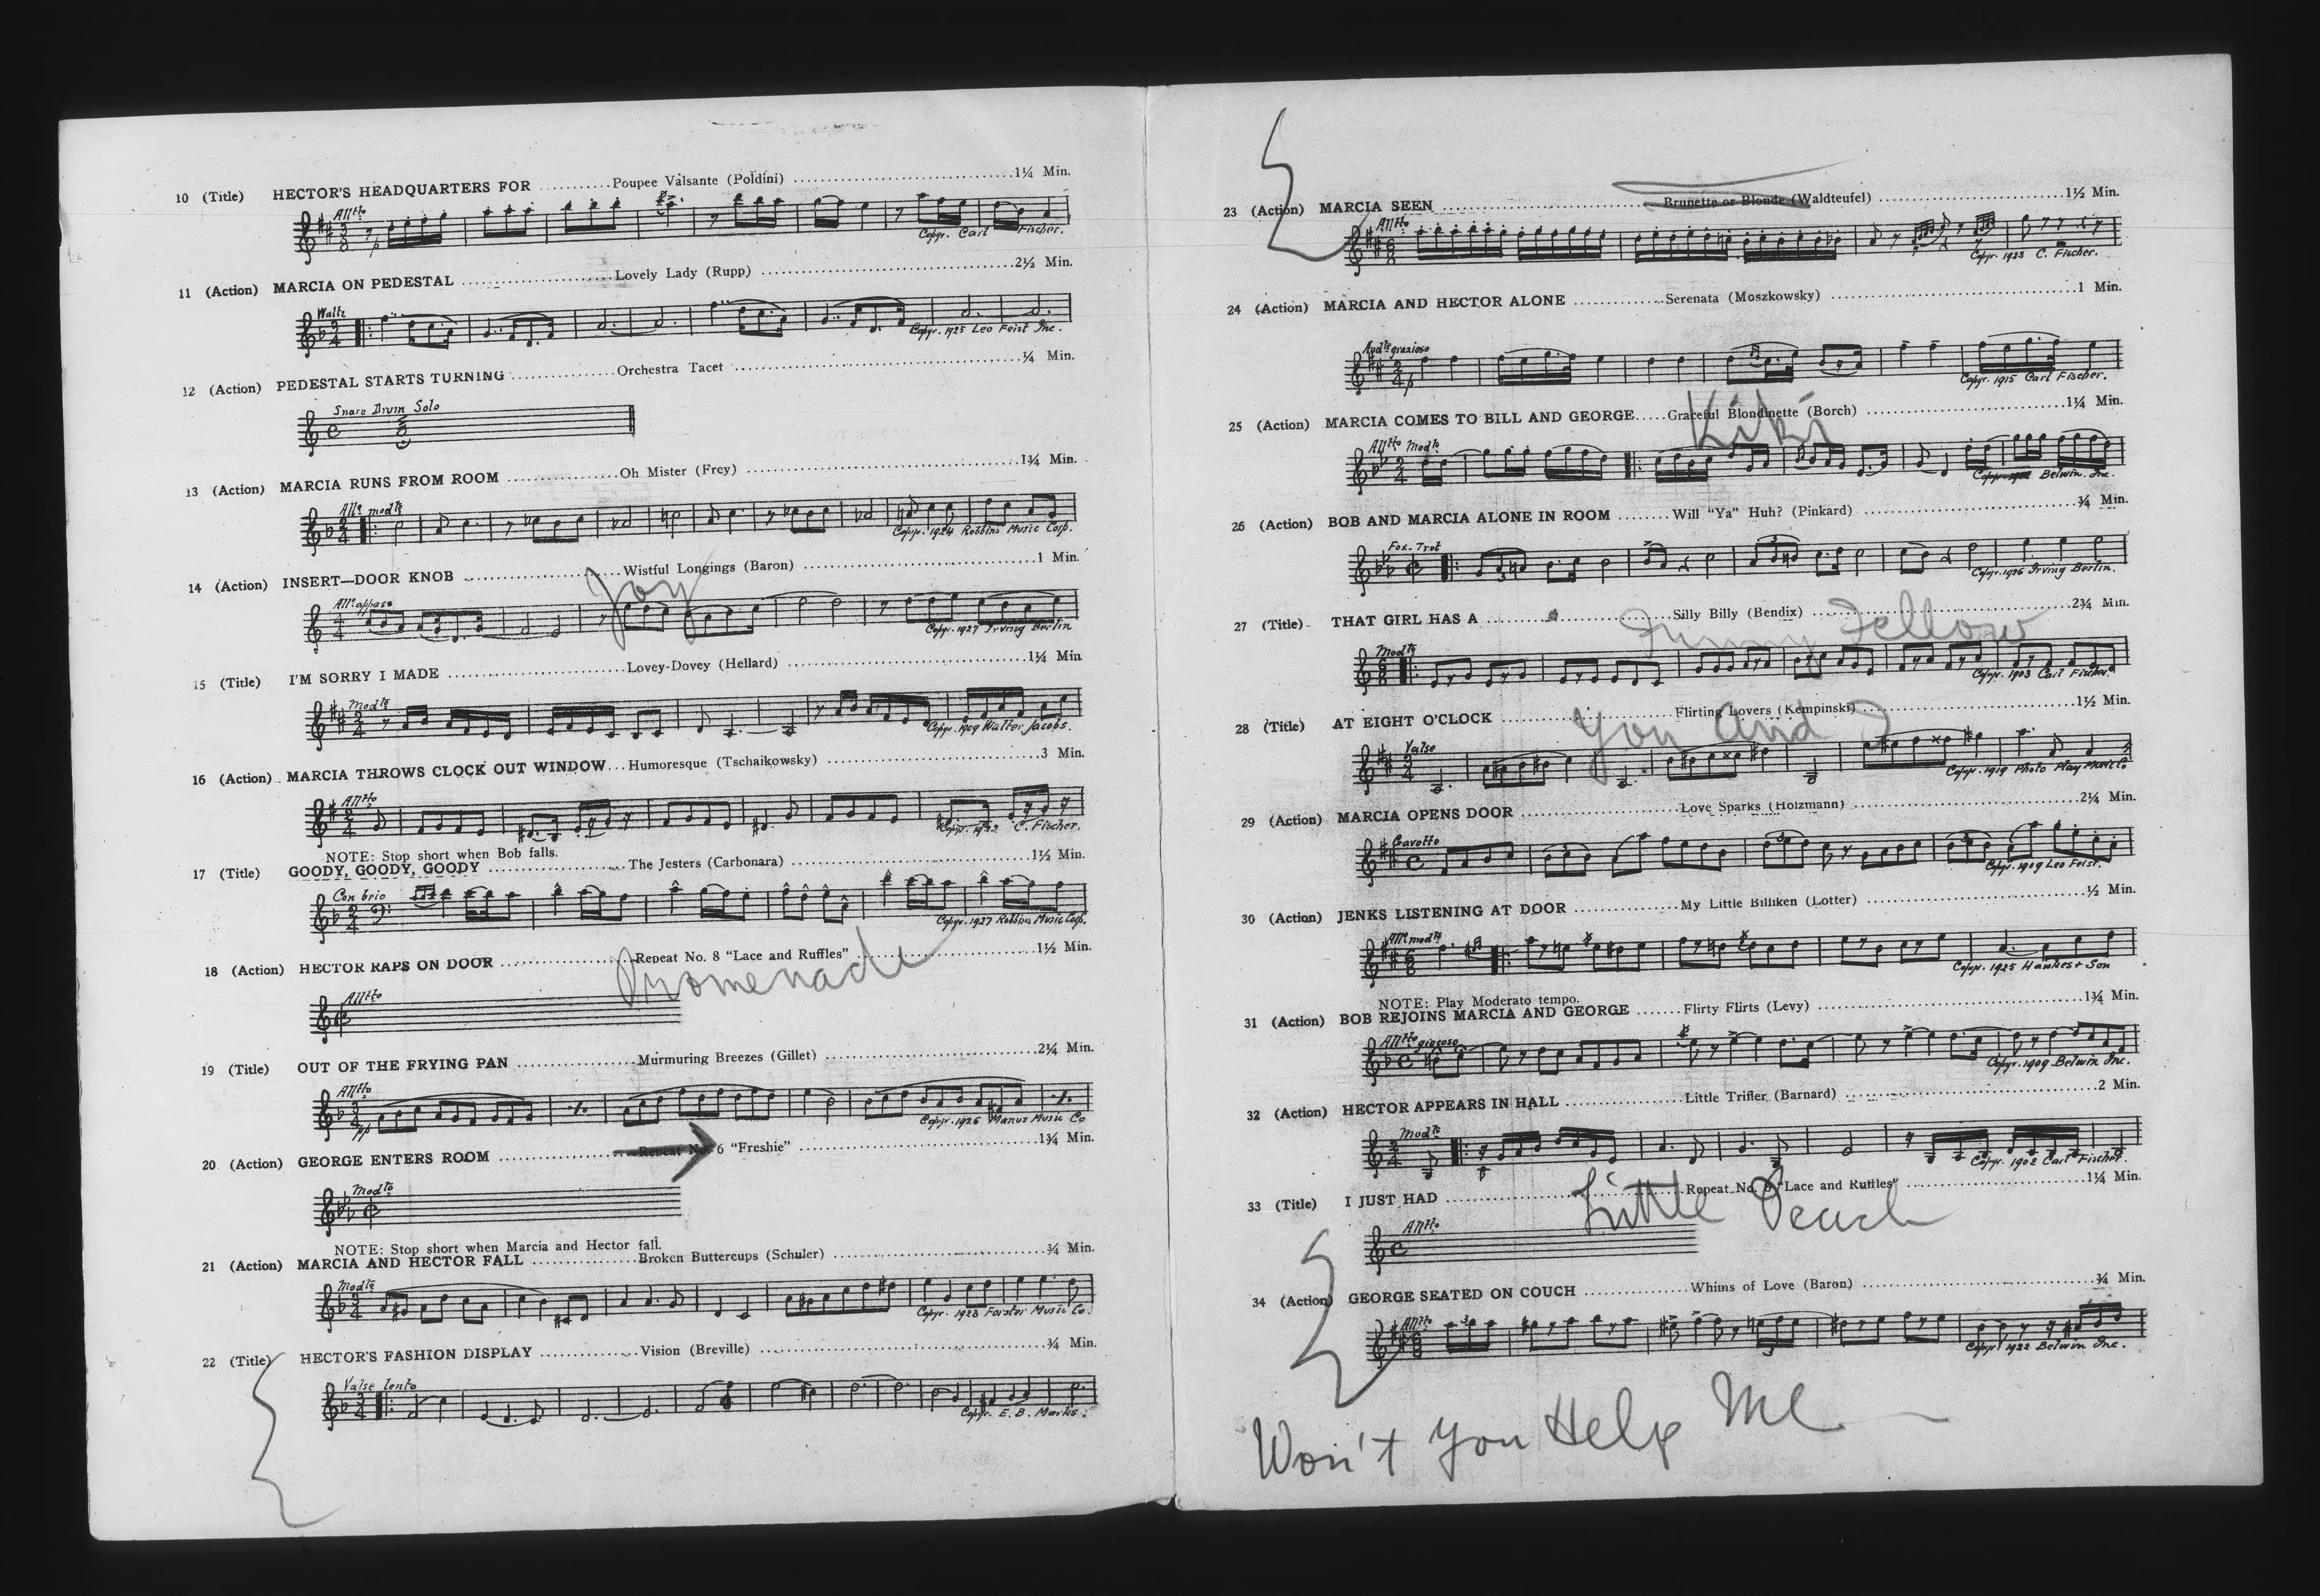 10 (Title) HECTOR'S HEADQUARTERS FOR ........... Poupee Valsante (Poldini) ........... 1¼ Min.
Allᵗᵗᵒ
Copyr. Carl Fischer.
11 (Action) MARCIA ON PEDESTAL ........... Lovely Lady (Rupp) ........... 2½ Min.
Waltz
Copyr. 1925 Leo Feist Inc.
12 (Action) PEDESTAL STARTS TURNING ........... Orchestra Tacet ........... ¼ Min.
Snare Drum Solo
13 (Action) MARCIA RUNS FROM ROOM ........... Oh Mister (Frey) ........... 1¾ Min.
Allº modᵗº
Copyr. 1924 Robbins Music Corp.
14 (Action) INSERT—DOOR KNOB ........... Wistful Longings (Baron) ........... 1 Min.
Joy
Allº appaso
Copyr. 1927 Irving Berlin
15 (Title) I'M SORRY I MADE ........... Lovey-Dovey (Hellard) ........... 1¼ Min
Modᵗº
Copyr. 1909 Walter Jacobs.
16 (Action) MARCIA THROWS CLOCK OUT WINDOW... Humoresque (Tschaikowsky) ........... 3 Min.
Allᵗᵗᵒ
Copyr. 1922 C. Fischer.
NOTE: Stop short when Bob falls.
17 (Title) GOODY, GOODY, GOODY ........... The Jesters (Carbonara) ........... 1½ Min.
Con brio
Copyr. 1927 Robbins Music Corp.
18 (Action) HECTOR RAPS ON DOOR ........... Repeat No. 8 "Lace and Ruffles" ........... 1½ Min.
Promenade
Allᵗᵗᵒ
19 (Title) OUT OF THE FRYING PAN ........... Murmuring Breezes (Gillet) ........... 2¼ Min.
Allᵗᵗᵒ
pp
Copyr. 1926 Manus Music Co
20 (Action) GEORGE ENTERS ROOM ........... Repeat No. 6 "Freshie" ........... 1¾ Min.
Modᵗᵒ
NOTE: Stop short when Marcia and Hector fall.
21 (Action) MARCIA AND HECTOR FALL ........... Broken Buttercups (Schuler) ........... ¾ Min.
Modᵗº
Copyr. 1923 Forster Music Co.
22 (Title) HECTOR'S FASHION DISPLAY ........... Vision (Breville) ........... ¾ Min.
Valse lento
Copyr. E. B. Marks.
23 (Action) MARCIA SEEN ........... Brunette or Blonde (Waldteufel) ........... 1½ Min.
Allᵗᵗᵒ
Copyr. 1923 C. Fischer.
24 (Action) MARCIA AND HECTOR ALONE ........... Serenata (Moszkowsky) ........... 1 Min.
Andᵗᵉ grazioso
Copyr. 1915 Carl Fischer.
25 (Action) MARCIA COMES TO BILL AND GEORGE..... Graceful Blondinette (Borch) ........... 1¼ Min.
Kiki
Allᵗᵗᵒ Modᵗᵒ
Belwin. Inc.
26 (Action) BOB AND MARCIA ALONE IN ROOM ........ Will "Ya" Huh? (Pinkard) ........... ¾ Min.
Fox-Trot
Copyr. 1926 Irving Berlin.
27 (Title) THAT GIRL HAS A ........... Silly Billy (Bendix) ........... 2¾ Min.
Funny Fellow
Modᵗº
Copyr. 1903 Carl Fischer.
28 (Title) AT EIGHT O'CLOCK ........... Flirting Lovers (Kempinski) ........... 1½ Min.
You and I
Valse
Copyr. 1919 Photo Play Music Co
29 (Action) MARCIA OPENS DOOR ........... Love Sparks (Holzmann) ........... 2¼ Min.
Gavotto
Copyr. 1909 Leo Feist.
30 (Action) JENKS LISTENING AT DOOR ........... My Little Billiken (Lotter) ........... ½ Min.
Allº modᵗº
Copyr. 1925 Hawkes + Son
NOTE: Play Moderato tempo.
31 (Action) BOB REJOINS MARCIA AND GEORGE ....... Flirty Flirts (Levy) ........... 1¾ Min.
Allᵗᵗᵒ giocoso
Copyr. 1909 Belwin Inc.
32 (Action) HECTOR APPEARS IN HALL ........... Little Trifler (Barnard) ........... 2 Min.
Modᵗº
Copyr. 1902 Carl Fischer.
33 (Title) I JUST HAD ........... Repeat No. 8 "Lace and Ruffles" ........... 1¼ Min.
Little Peach
Allᵗᵗᵒ
34 (Action) GEORGE SEATED ON COUCH ........... Whims of Love (Baron) ........... ¾ Min.
Allᵗᵗᵒ
Copyr. 1922 Belwin Inc.
Won't You Help Me